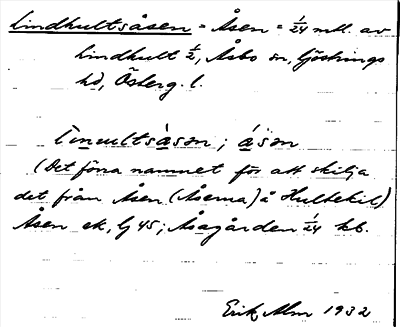 Lindhultsåsen = Åsen = 1/24 mtl. av
Lindhult 1/2, Åsbo sn, Göstrings
hd, Österg. l.
lìnɯltsåsən; åsən
(Det förra namnet för att skilja
det från Åsen (Åserna) å Hultekil)
Åsen ek, Gj 45; Åsagården 1/24 kb.
Erik Alm 1932